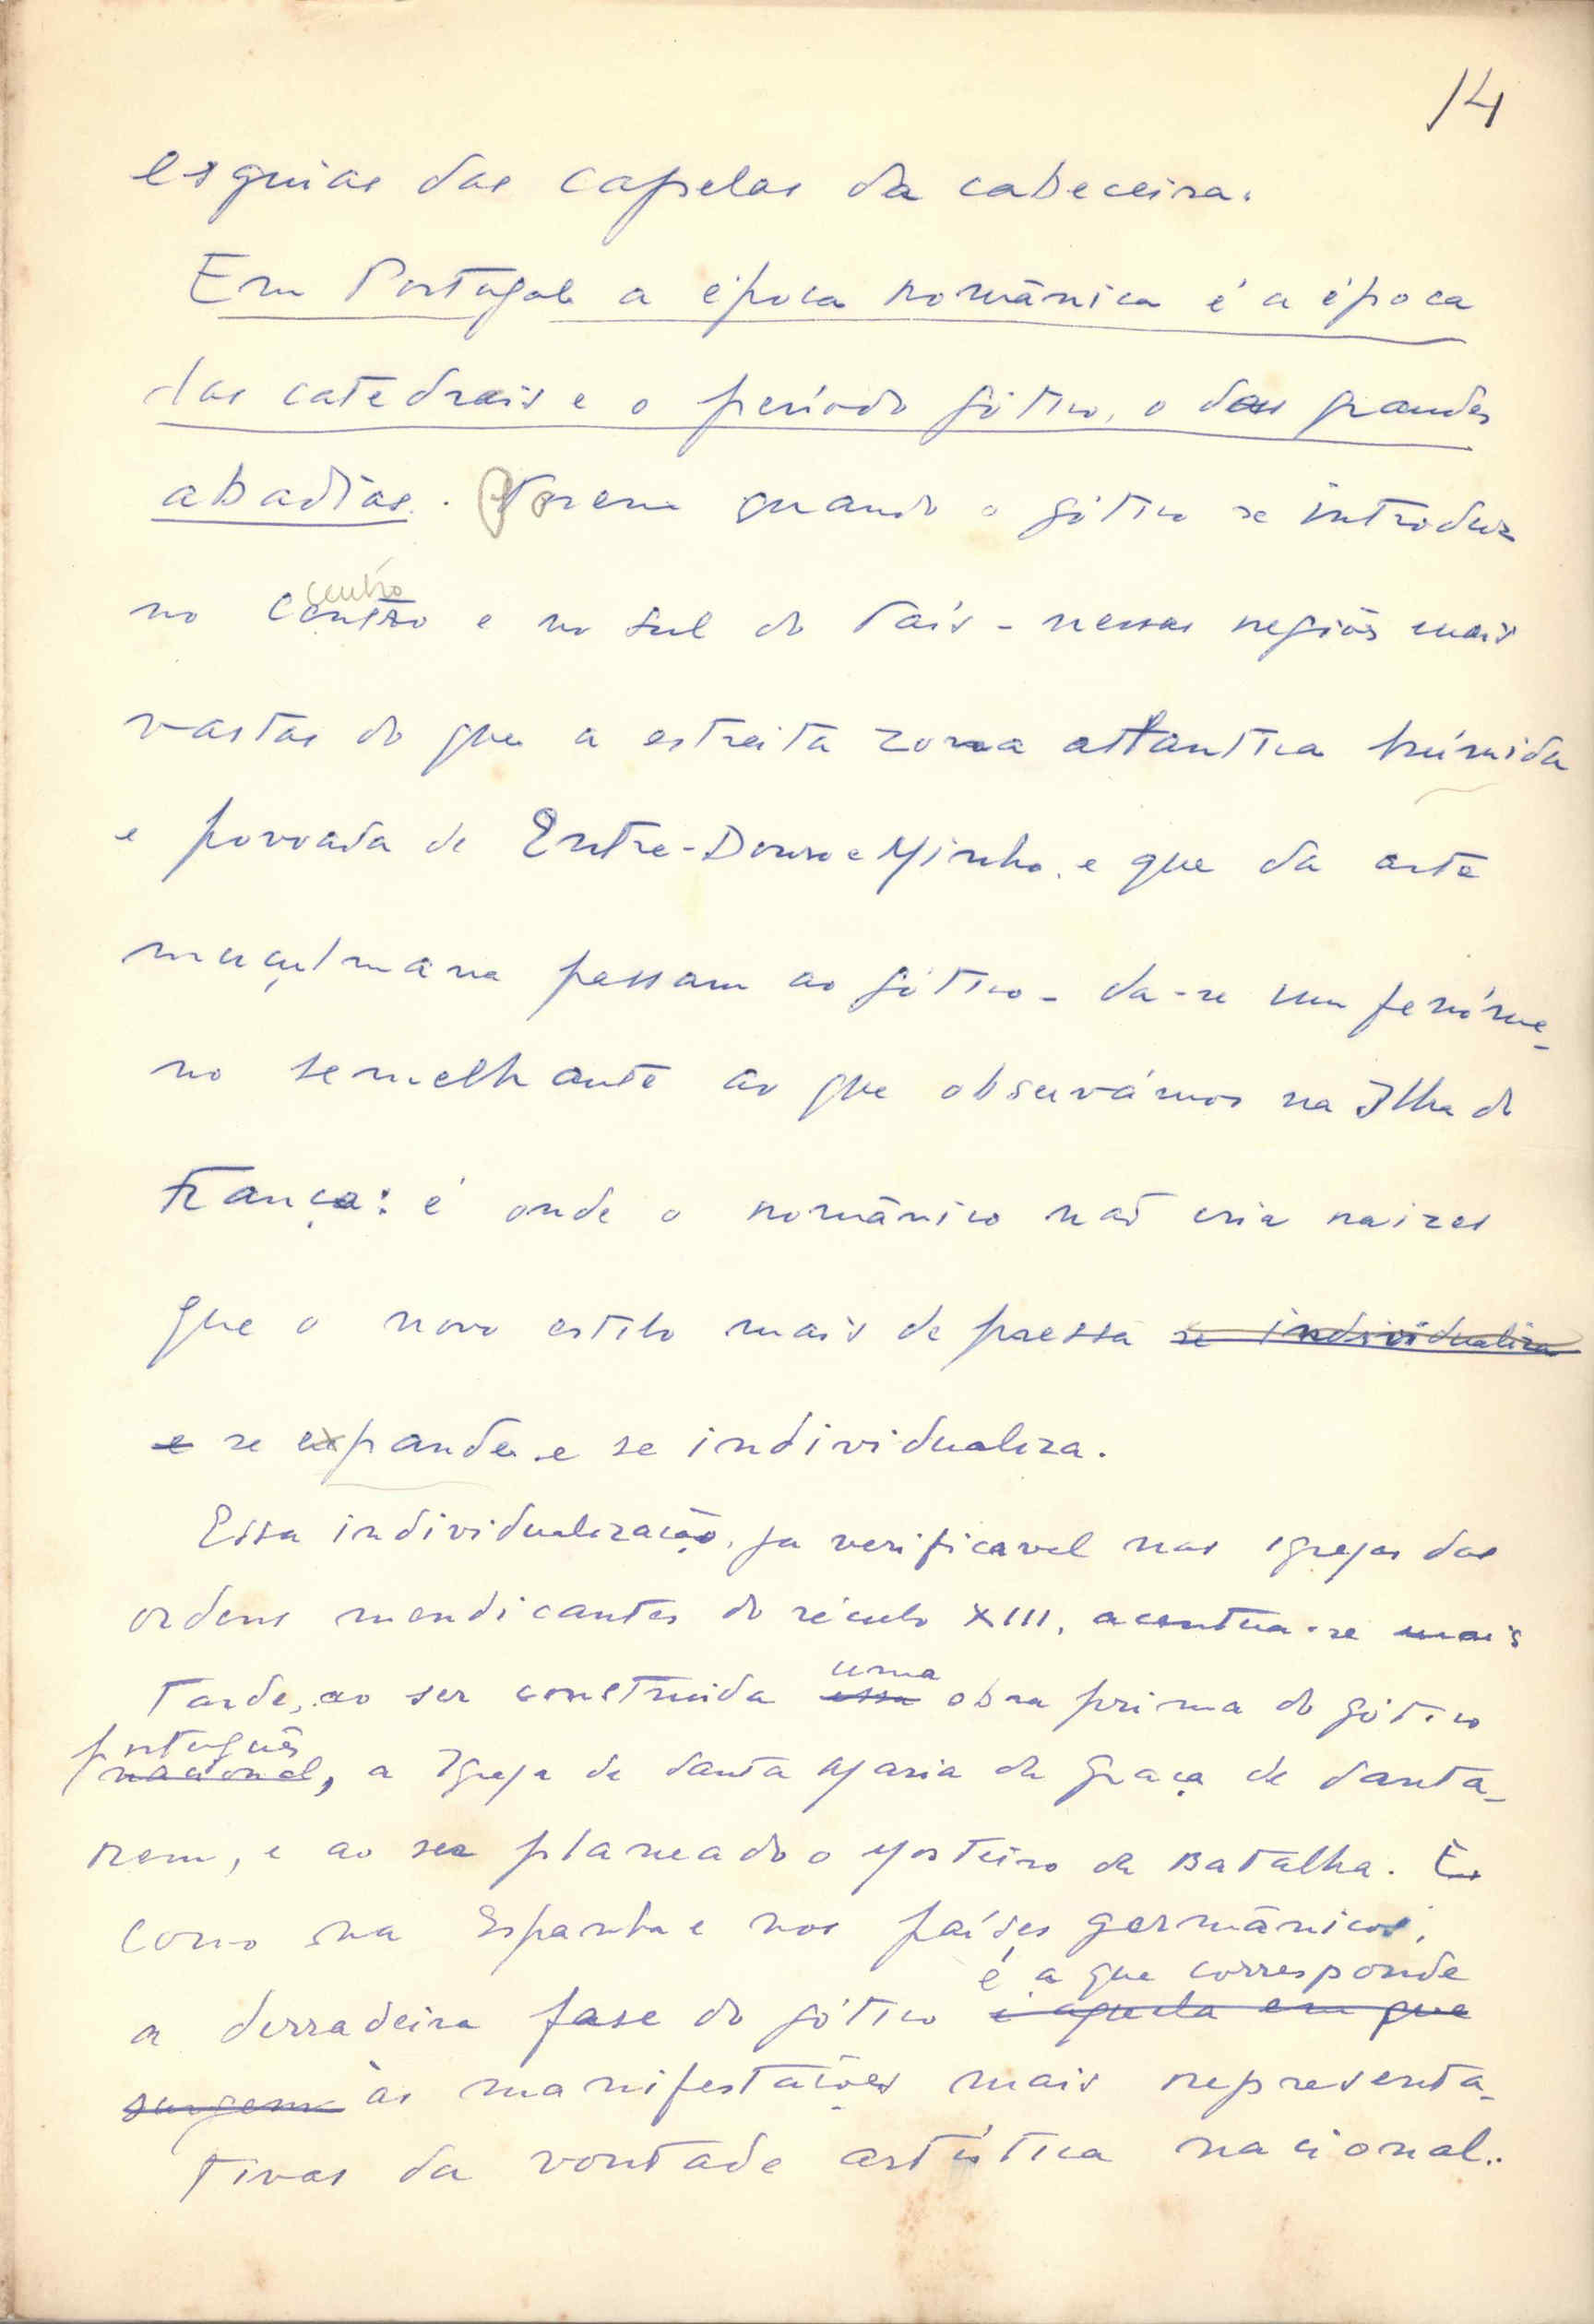 14
esguias das capelas da cabeceira.
Em Portugal a época românica é a época
das catedrais e o período gótico, o das grandes
abadias. Porem quando o gótico se introduz
centro
no centro e no sul do País - nessas regiões mais
vastas do que a estreita zona atlantica húmida
e povoada de Entre-Douro e Minho, e que da arte
muçulmana passam ao gótico - da-se um fenóme-
no semelhante ao que observámos na Ilha de
França: é onde o românico não cria raizes
que o novo estilo mais depressa se individualiza
e se expande e se individualiza.
Essa individualização, ja verificavel nas igrejas das
ordens mendicantes do século XIII, acentua-se mais
uma
tarde, ao ser construida essa obra prima do gótico
português
nacional, a Igreja de Santa Maria da Graça de Santa-
rem, e ao ser planeado o Mosteiro da Batalha. E
como na Espanha e nos países germânicos,
é a que corresponde
a derradeira fase do gótico é aquela em que
surgem às manifestações mais representa-
tivas da vontade artística nacional.